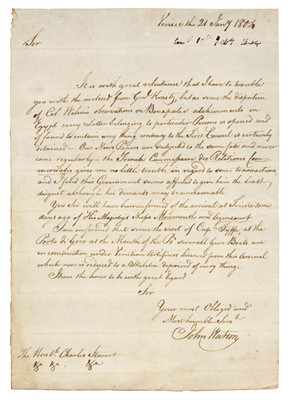 Venice the 21 Janry 1804
Sir
It is with great reluctance that I have to trouble
you with the inclosed from Genl. but as since the dispersion
of Col. Wilsons observations on Bonaparte's atchievments in
Egypt every Letter belonging to particular Persons is opened and
if found to contain any thing contrary to the First Consul is certainly
detained — Our News Papers are subjected to the same fate and never
come regularly — the French Commissaire des Relations Com-
merciales gives me no little trouble in regard to some transactions
and I fetch this Government seems afraid to give him the least
disgust although his demands are unreasonable
You Sir will have been informed of the arrival at Trieste some
days ago of His Majestys Ships Monmouth and Agincourt
I am informed that since the visit of Capn. at the
Porto di Goro at the Mouth of the Po several Gun Boats are
in construction under Venetian Artificers licenced from this Arsenal
which now is reduced to a Skeleton deprived of every thing.
I have the honor to be with great regard
Sir
Your most Obliged and
Most humble Servt.
John Watson
The Honble. Charles Stewart
&c &c &c